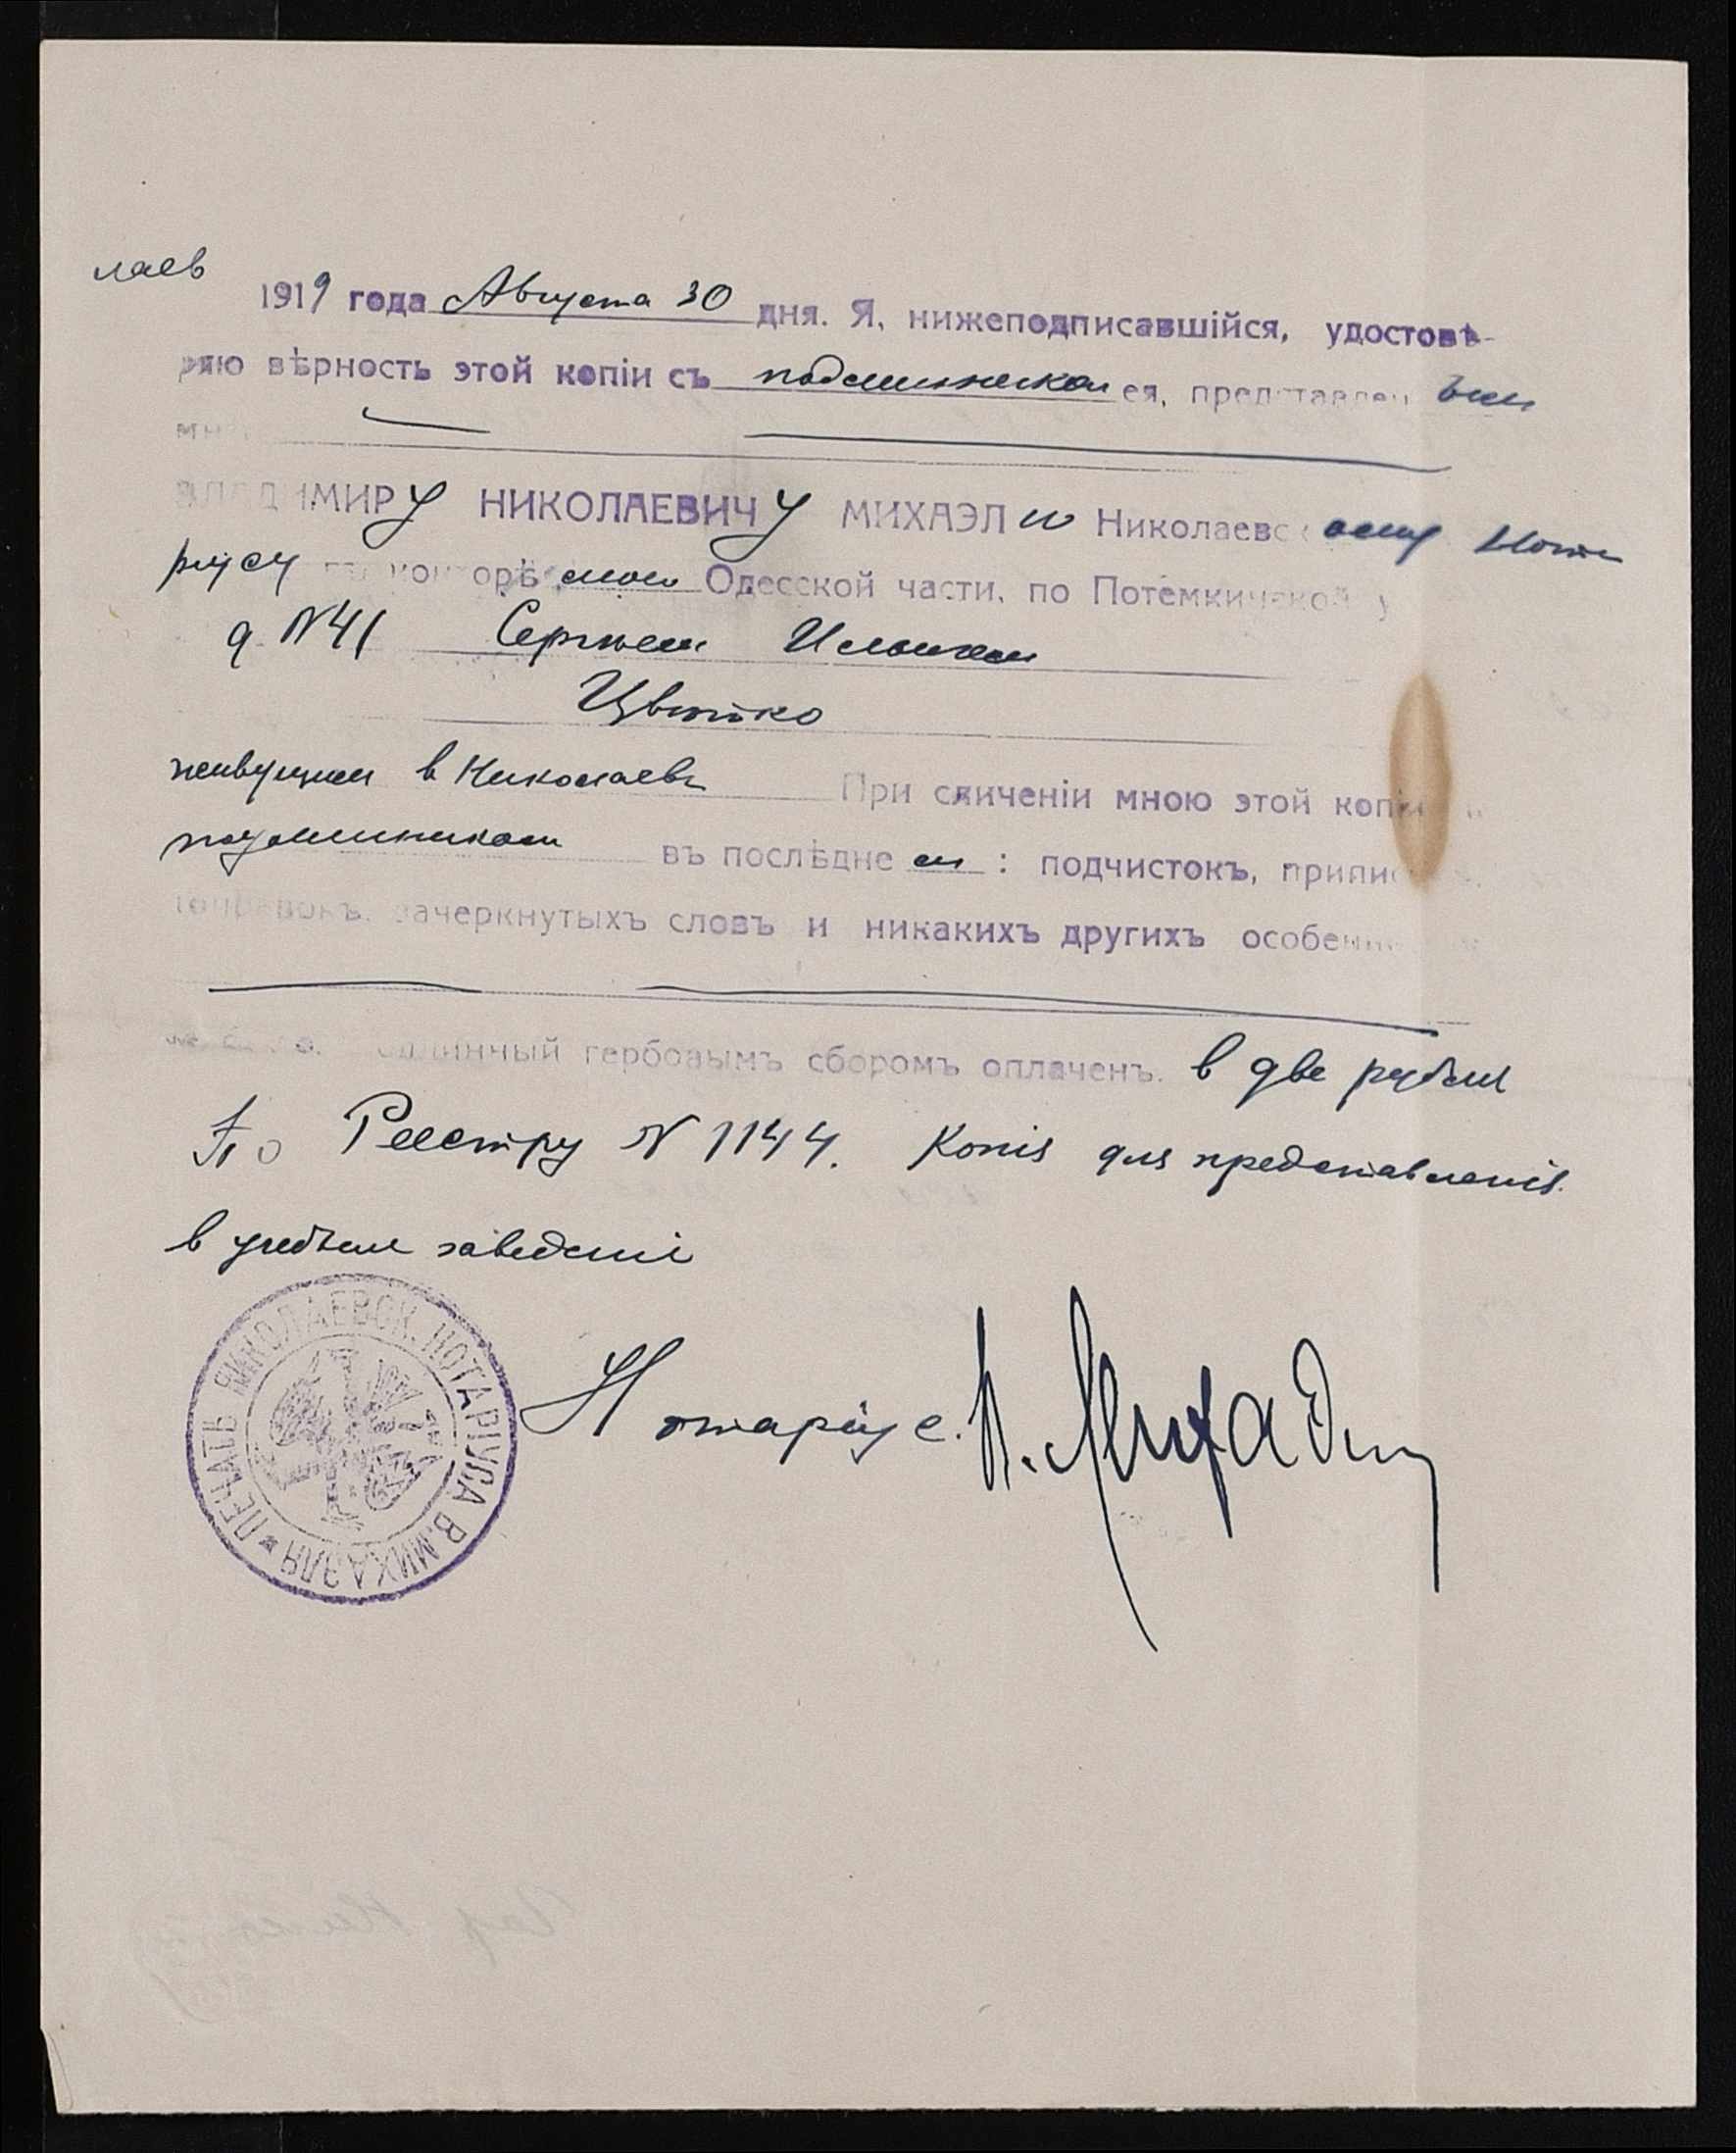 лаев
1919 года Августа 30 дня. Я, нижеподписавшійся, удостовѣ-
ряю вѣрность этой копіи съ подлинником ея, представлен ным
мнѣ
ВЛАДИМИРу НИКОЛАЕВИЧу МИХАЭЛю Николаевскому Нота
ріусу въ конторѣ моей Одесской части, по Потемкинской у
д. N41 Сергеем Ильичем
Цвѣтко
живущим в Николаевѣ При сличеніи мною этой копіи
подлинником въ послѣднем: подчистокъ, припис
поправокъ, зачеркнутыхъ словъ и никакихъ другихъ особенн
Подлинный гербовымъ сборомъ оплаченъ. в две рубля
По Реестру N 1144. Копія для представленія
в учебные заведені
Нотаріус. В. Михаэль
ПЕЧАТЬ НИКОЛАЕВСК. НОТАРІУСА В. МИХАЭЛЯ